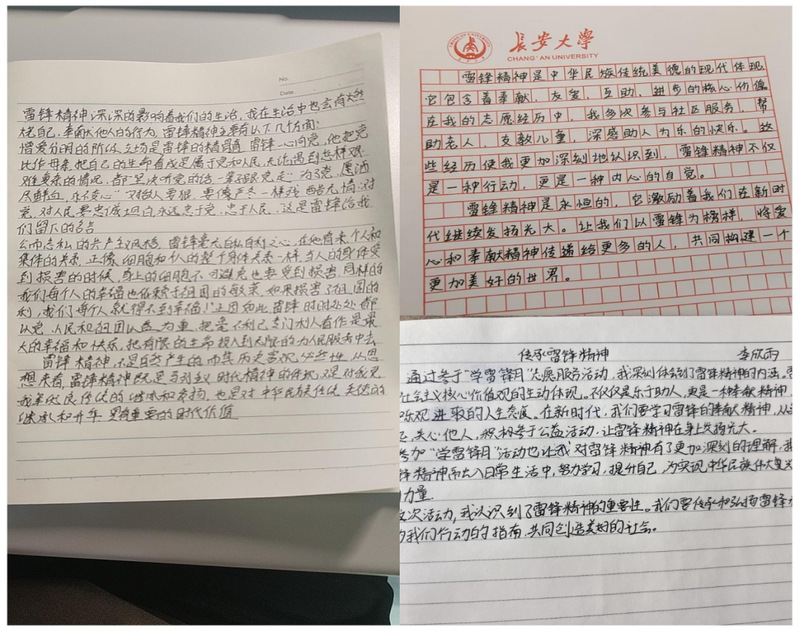 No.
Date
雷锋精神深深的影响着我们的生活，我在生活中也会有燃
烧自己，奉献他人的行为，雷锋精神主要有以下几方面：
憎爱分明的阶级立场是雷锋的精闻，雷锋一心向党，他把党
比作母亲，把自己的生命看成是属于党和人民，无论遇到怎样艰
难复杂的情况，都"坚决听党的话一辈跟党走"为了党，愿洒
尽鲜血，永不变心"对敌人要狠，要像严冬一样残酷无情；对
党，对人民要忠诚坦白永远忠于党，忠于人民，这是雷锋给我
们留下的名言
公而忘私的共产主义风格，雷锋毫无自私自利之心，在他看来，个人和
集体的关系，正像细胞和人的整个身体关系一样，当人的身体受
到损害的时候，身上的细胞不可避免也要受到损害，同样的
我们每个人的幸福也依赖于祖国的繁荣，如果损害了祖国的
利，我们每个人就得不到幸福！"正因如此，雷锋时时处处都
以党，人民和祖国以益为重，把毫不利己专门利人看作是最
大的幸福和快乐，把有限的生命投入到无限的为人民服务中去
雷锋精神，不是自然产生的而是历史客观必然性，从思
想来看，雷锋精神既是马列主义时代精神的体现，又是对我党
我军优良传统的继承和秉扬，也是对中华民族传统美德的
继承和升华，更有重要的时代价值
長安大學
CHANG'AN UNIVERSITY
雷锋精神是中华民族传统美德的现代体现，
它包含着奉献、友爱、互助、进步的核心价值。
在我的志愿经历中，我多次参与社区服务，帮
助老人，支教儿童，深感助人为乐的快乐。这
些经历使我更加深刻地认识到，雷锋精神不仅
是一种行动，更是一种内心的自觉。
雷锋精神是永恒的，它激励着我们在新时
代继续发扬光大。让我们以雷锋为榜样，将爱
心和奉献精神传递给更多的人，共同构建一个
更加美好的世界。
传承雷锋精神 李欣雨
通过参于"学雷锋月"志愿服务活动，我深刻体会到了雷锋精神的内涵，
社会主义核心价值观的生动体现。不仅仅是乐于助人，更是一种奉献精神
乐观进取的人生态度。在新时代，我们要学习雷锋的奉献精神，从
关心他人，积极参于公益活动，让雷锋精神在身上发扬光大。
参加"学雷锋月"活动也让我对雷锋精神有了更加深刻的理解，
锋精神而出入日常生活中，努力学习，提升自己，为实现中华民族伟大复兴
力量
次活动，我认识到了雷锋精神的重要性。我们要传承和弘扬雷锋
为我们行动的指南，共同创造美好的社会。